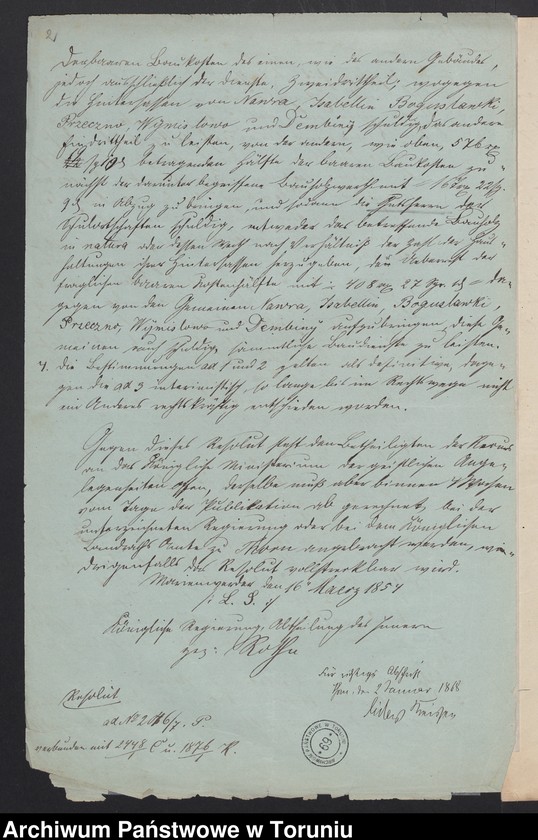 der baaren Baukosten des einen, wie des andern Gebäudes,
jedoch ausschließlich der Dienste, Zweidrittheil; wogegen
die Hintersassen von Nawra, Isabellin, Boguslawki,
Przeczno, Wymislowo und Dembiny schuldig, das andere
Eindrittheil zu leisten, von der andern, wie oben, 576
betragenden Hälfte der baaren Baukosten zu-
nächst der darunter begriffene Bauholzwerth mit
in Abzug zu bringen, und sodann die Gutsherrn der
Schulortschaften schuldig, entweder das betreffende Bauholz
in natura oder dessen Werth nach Verhältniß der Zahl der Haus-
haltungen ihrer Hintersassen herzugeben, den Ueberrest der
fraglichen baaren Kostenhälfte mit 408 27 da-
gegen von den Gemeinen Nawra, Isabellin, Boguslawki
Przeczno, Wymislowo und Dembiny aufzubringen, diese Ge-
meinen auch schuldig sämmtliche Baudienste zu leisten.
4. die Bestimmungen ad 1 und 2 gelten als definitive, dage-
gen die ad 3 interimistisch, so lange bis im Rechtswege nicht
ein Anderes rechtskräftig entschieden worden.
Gegen dieses Resolut steht den Betheiligten der Recurs
an das Königliche Ministerium der geistlichen Ange-
legenheiten offen, derselbe muß aber binnen 4 Wochen
vom Tage der Publikation ab gerechnet, bei der
unterzeichneten Regierung oder bei dem Königlichen
Landraths Amte zu Thorn angebracht werden, wie-
drigenfalls das Resolut vollstreckbar wird.
Marienwerder den 16 Maerz 1854
/: L. S. :/
Königliche Regierung, Abtheilung des Innern
gez:
Für richtige Abschrift
den 2 Januar 1868
Resolut
ad No
verbunden mit 2448 C u. 1876
ARCHIWUM PAŃSTWOWE W TORUNIU
69
Archiwum Państwowe w Toruniu